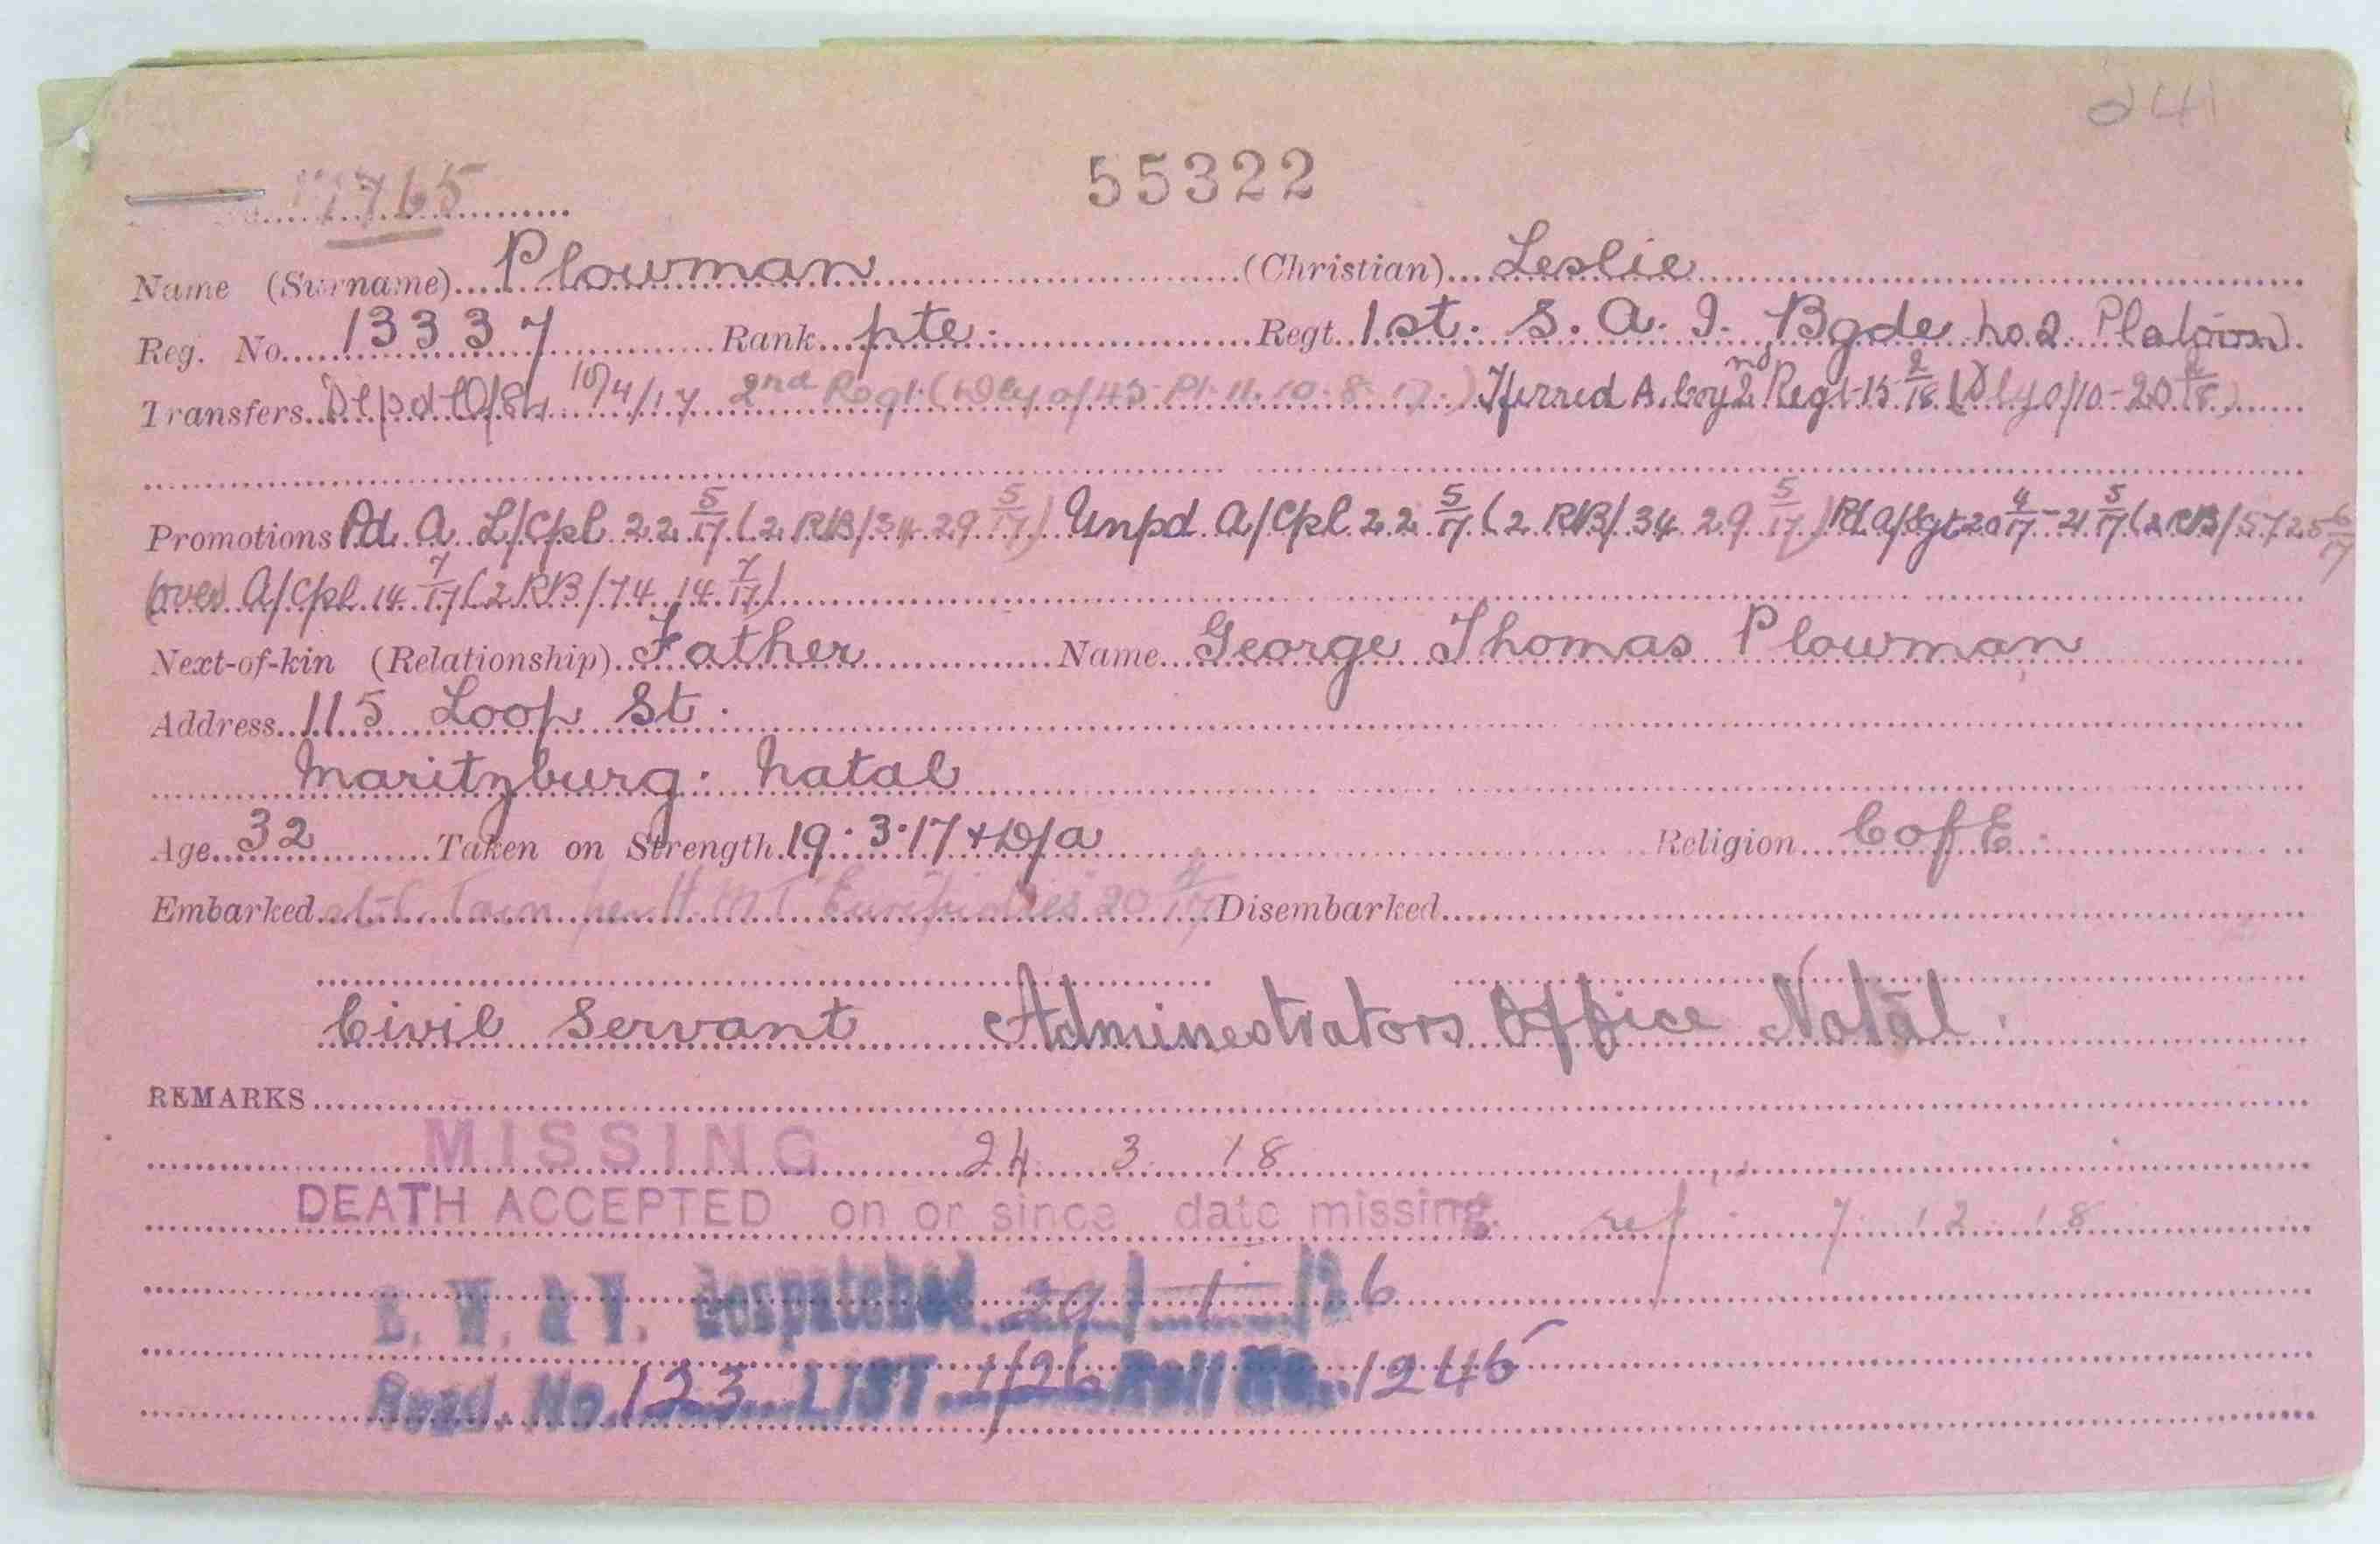 241
55322
7765
Name (Surname) Plowman (Christian) Leslie
Reg. No. 13337 Rank pte. Regt. 1st. S. A. I. Bgde No. 2. Platoon.
Transfers 10/4/17 2nd Regt. Tferred A. Coy 2nd Regt 15 2/18
Promotions Pd. A. L/Cpl 22 5/17 (2 RB/34 29 5/17) Unpd A/Cpl 22 5/17 (2 RB/34 29 5/17) Pd A/Sgt 20 4/17 - 21 5/17 (2 RB/57 25 6/17
(over) A/Cpl 14 7/17 (2 RB/74 14 7/17)
Next-of-kin (Relationship) Father Name George Thomas Plowman
Address 115 Loop St.
Maritzburg. Natal
Age 32 Taken on Strength 19.3.17 Religion C of E.
Embarked H.M.T. Euripides 20 4/17 Disembarked
Civil Servant Administrators Office Natal.
REMARKS
MISSING 24 3 18
DEATH ACCEPTED on or since date missing. ref. 7.12.18
despatched 29/1/26
No. 123 LIST 1/26 Roll No. 1245